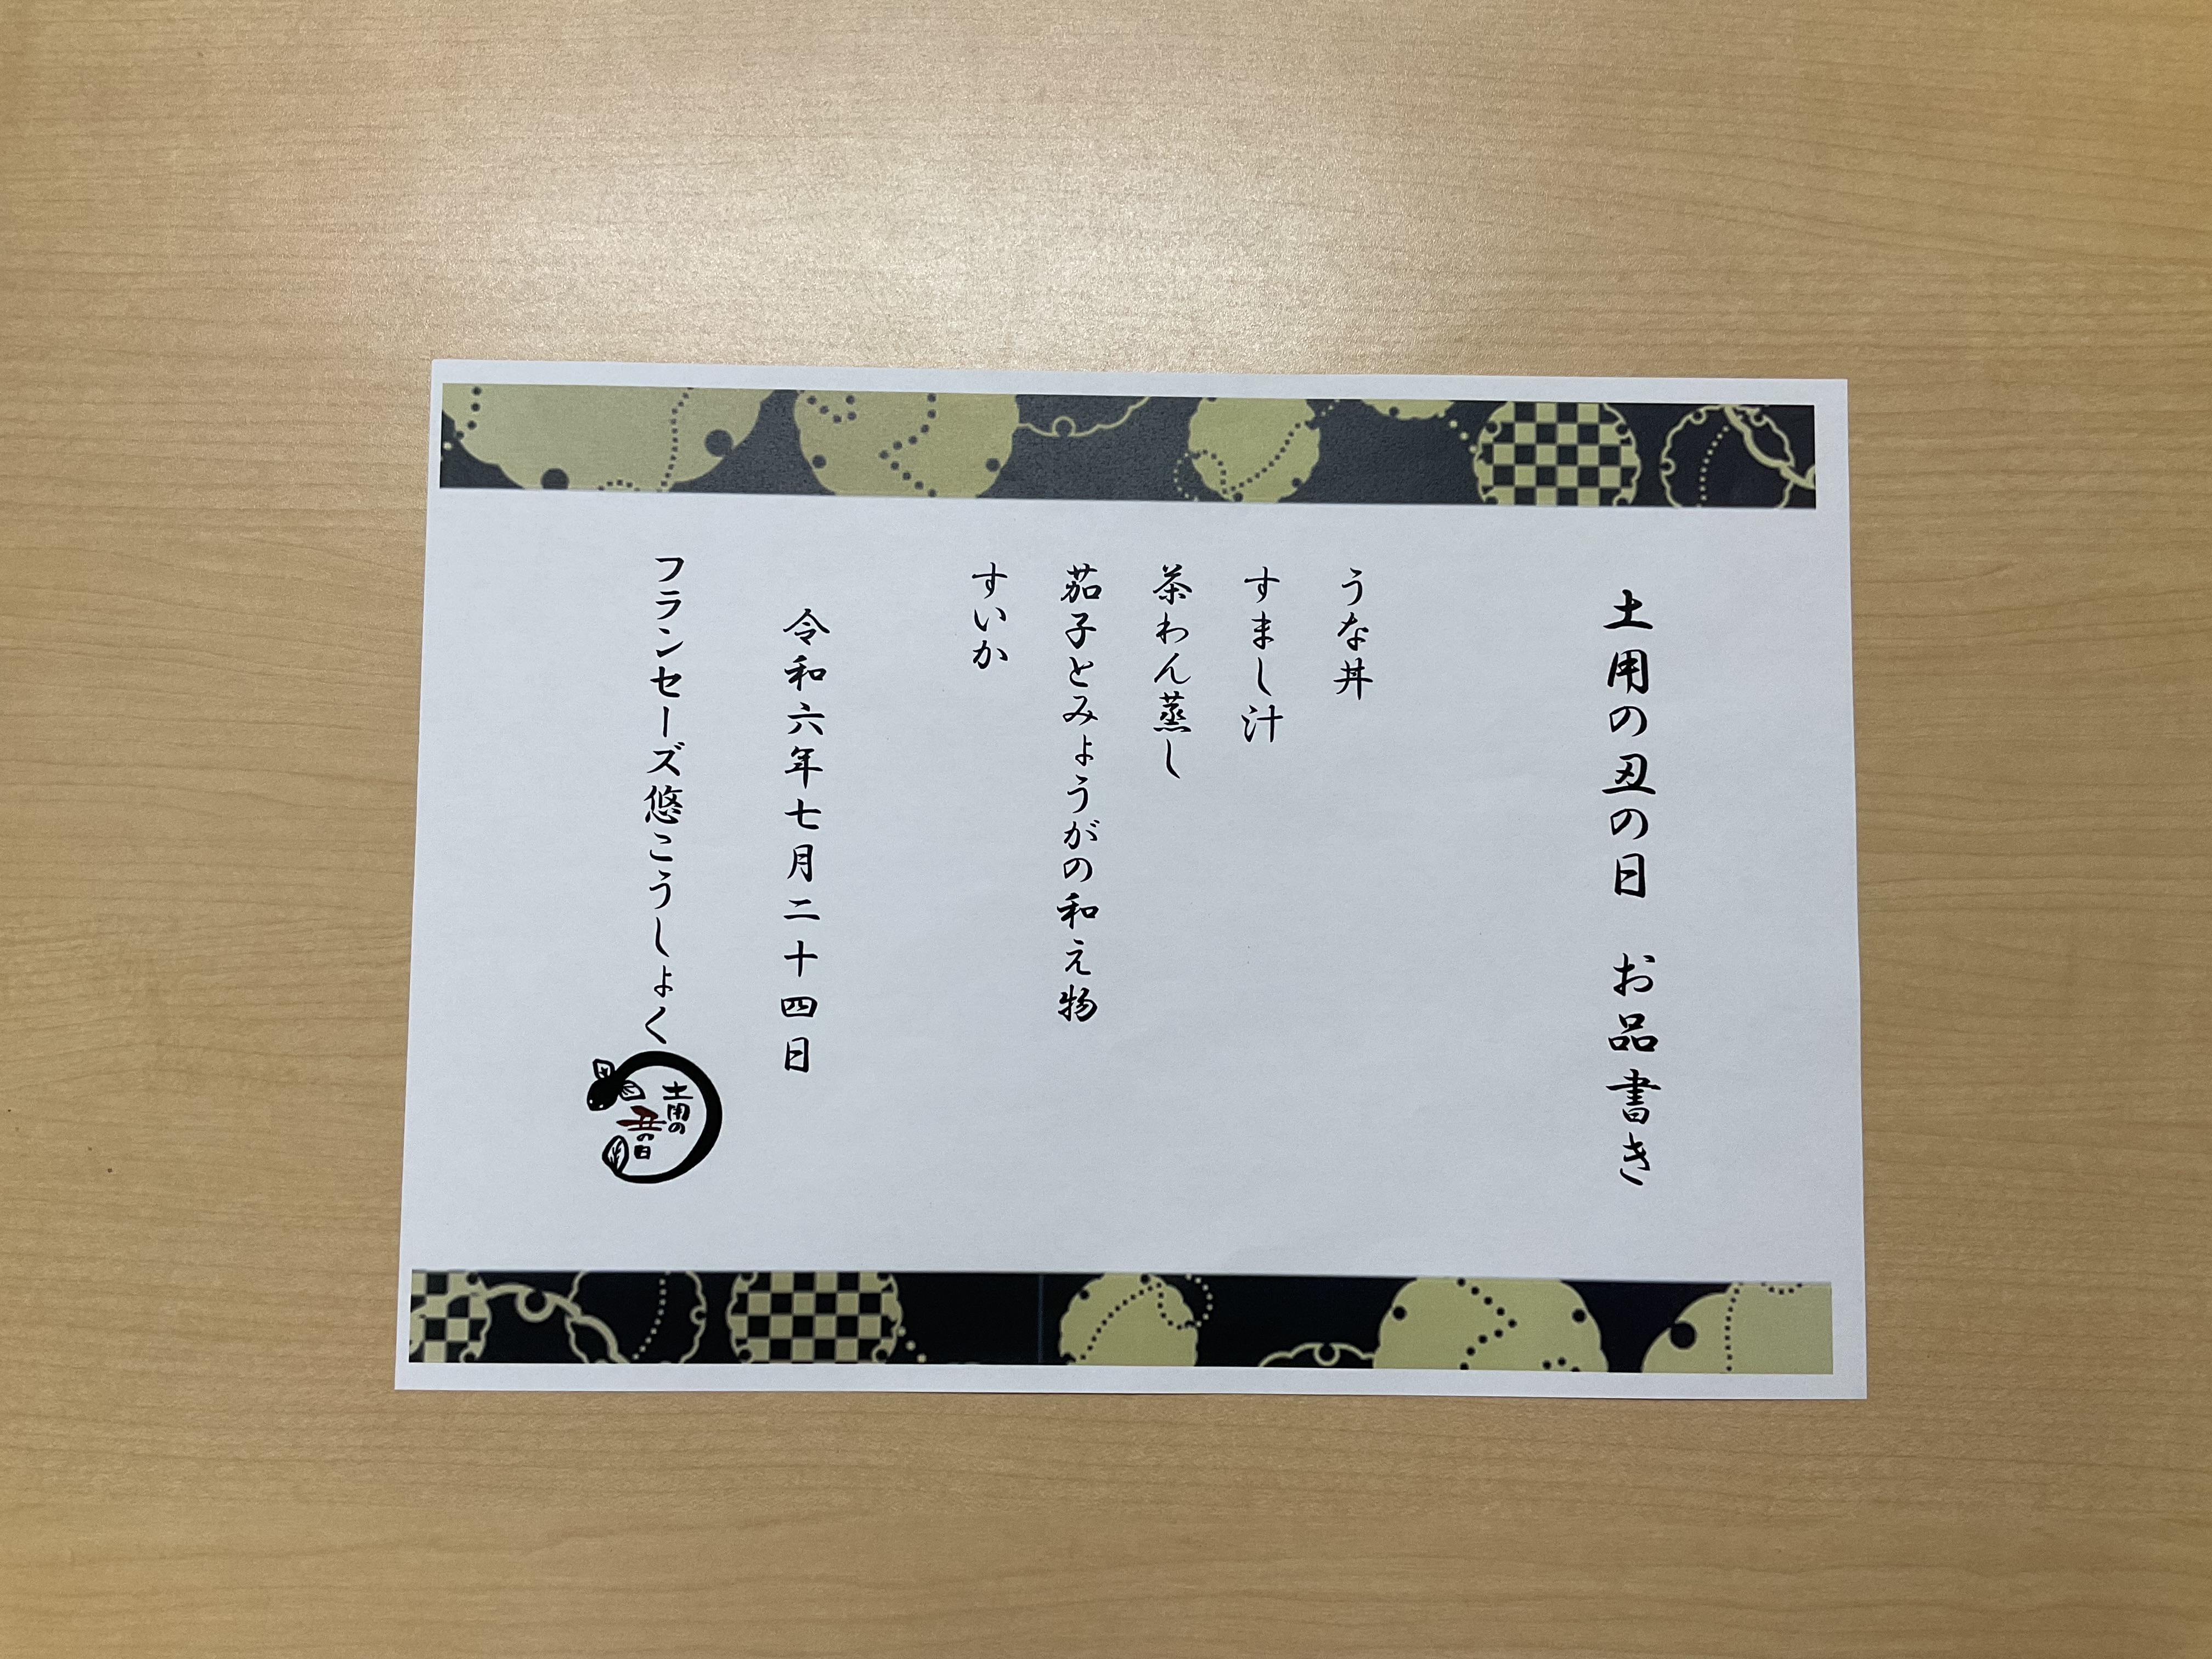 土用の丑の日　お品書き
うな丼
すまし汁
茶わん蒸し
茄子とみょうがの和え物
すいか
令和六年七月二十四日
フランセーズ悠こうしょく
土用の
丑の日